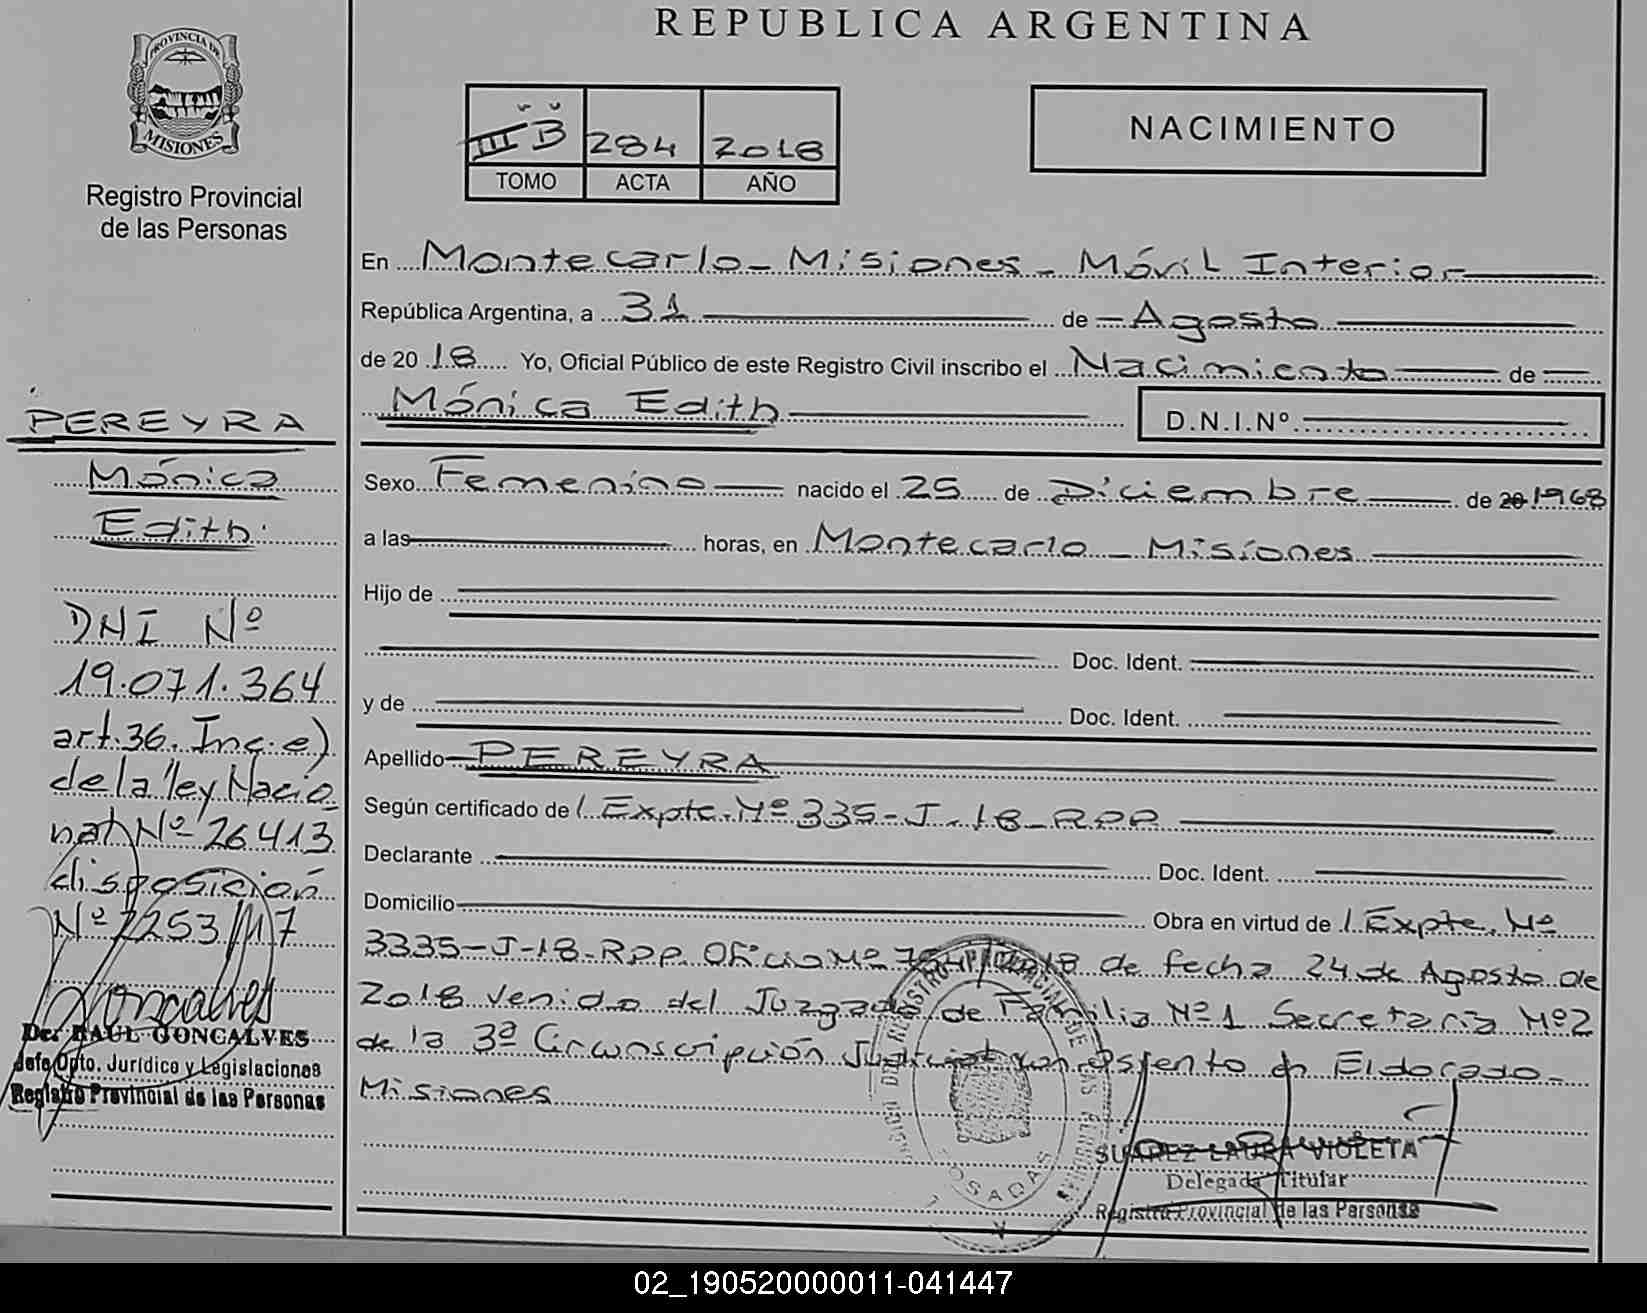 REPUBLICA ARGENTINA
PROVINCIA DE
MISIONES
Registro Provincial
de las Personas
III "B" 284 2018
TOMO ACTA AÑO
NACIMIENTO
En Montecarlo - Misiones - Móvil Interior
República Argentina, a 31 de Agosto
de 20 18 Yo, Oficial Público de este Registro Civil inscribo el Nacimiento de
Mónica Edith
D.N.I.Nº
Sexo Femenino nacido el 25 de Diciembre de 20 1968
a las horas, en Montecarlo - Misiones
Hijo de
Doc. Ident.
y de Doc. Ident.
Apellido PEREYRA
Según certificado de / Expte. Nº 335-J-18-RPP
Declarante Doc. Ident.
Domicilio Obra en virtud de / Expte. Nº
3335-J-18-RPP. Oficio Nº de fecha 24 de Agosto de
2018 venido del Juzgado de Familia Nº1 Secretaría Nº2
de la 3ª Circunscripción Judicial con asiento en Eldorado-
Misiones
SUAREZ LAURA VIOLETA
Delegada Titular
Registro Provincial de las Personas
POSADAS
PEREYRA
Mónica
Edith.
DNI Nº
19.071.364
art.36. Inc.e)
de la ley Nacio
nal Nº 26413
disposición
Nº 2253/17
Goncalves
Dr. RAUL GONCALVES
Jefe Dpto. Jurídico y Legislaciones
Registro Provincial de las Personas
02_190520000011-041447